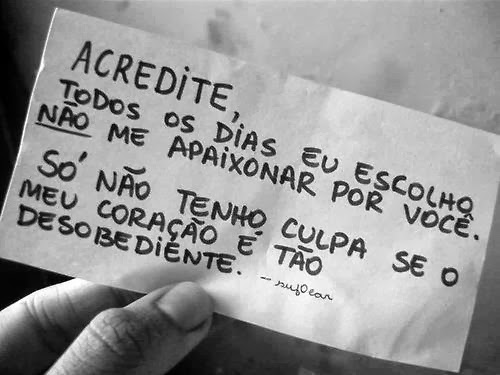 ACREDiTE,
TODOS OS DiAS EU ESCOLHO
NÃO ME APAiXONAR POR VOCÊ.
SÓ NÃO TENHO CULPA SE O
MEU CORAÇÃO É TÃO
DESOBEDiENTE.
— suf0car